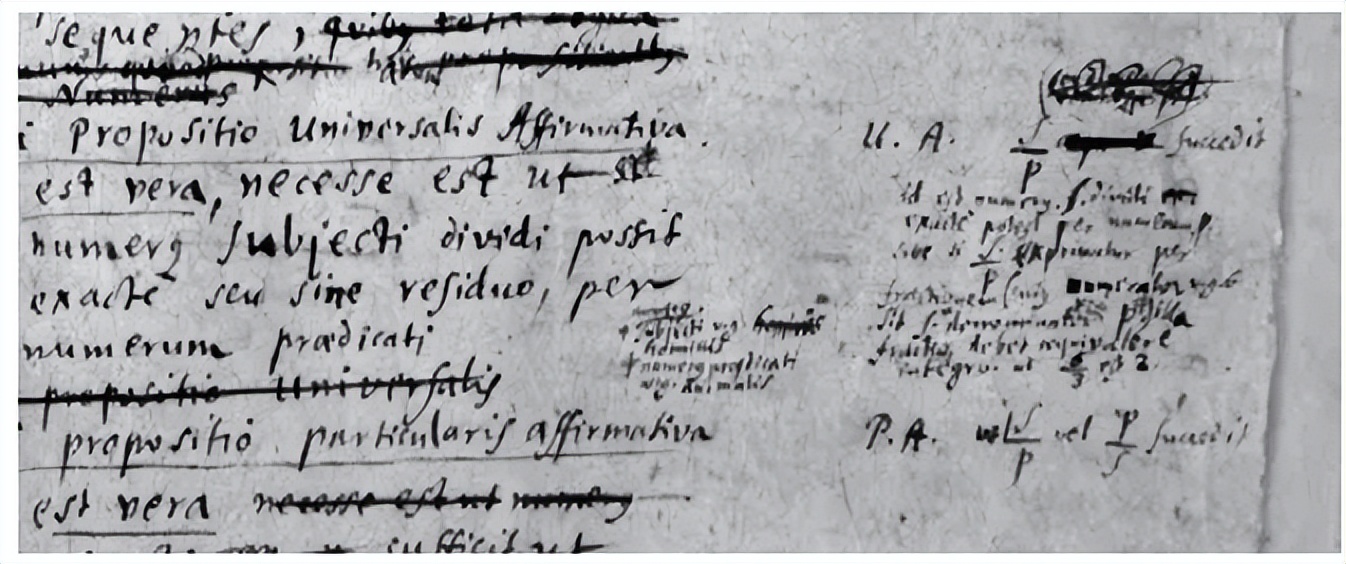 sequentes,
Numeris
Propositio Universalis Affirmativa
est vera, necesse est ut
numerus subjecti dividi possit
exacte seu sine residuo, per
numerum prædicati
propositio Universalis
propositio particularis affirmativa
est vera necesse est ut numerus
sufficit ut
subjecti v.g.
hominis
numerus prædicati
v.g. Animalis
U. A. S/P succedit
id est numerus S. dividi
exacte potest per numerum P.
sive si S/P exprimatur per
fractionem cuius numerator v.g. 6
sit S. denominator P. illa
fractio debet æquivalere
integro. ut 6/3 est 2.
P. A. vel S/P vel P/S succedit